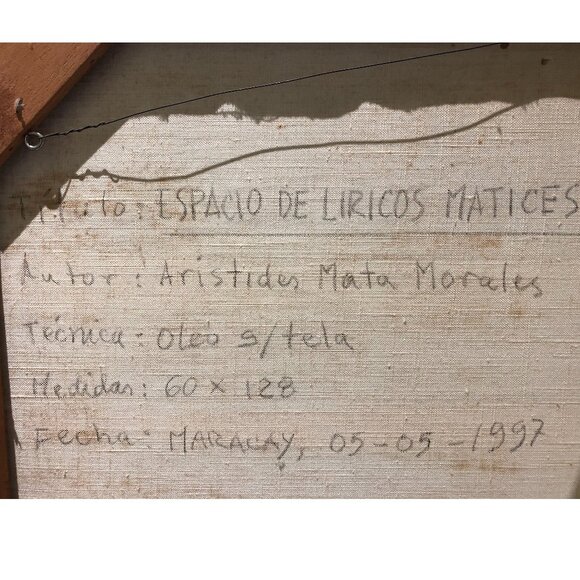 Título: ESPACIO DE LIRICOS MATICES
Autor: Aristides Mata Morales
Técnica: Oleo s/tela
Medidas: 60 x 128
Fecha: MARACAY, 05-05-1997